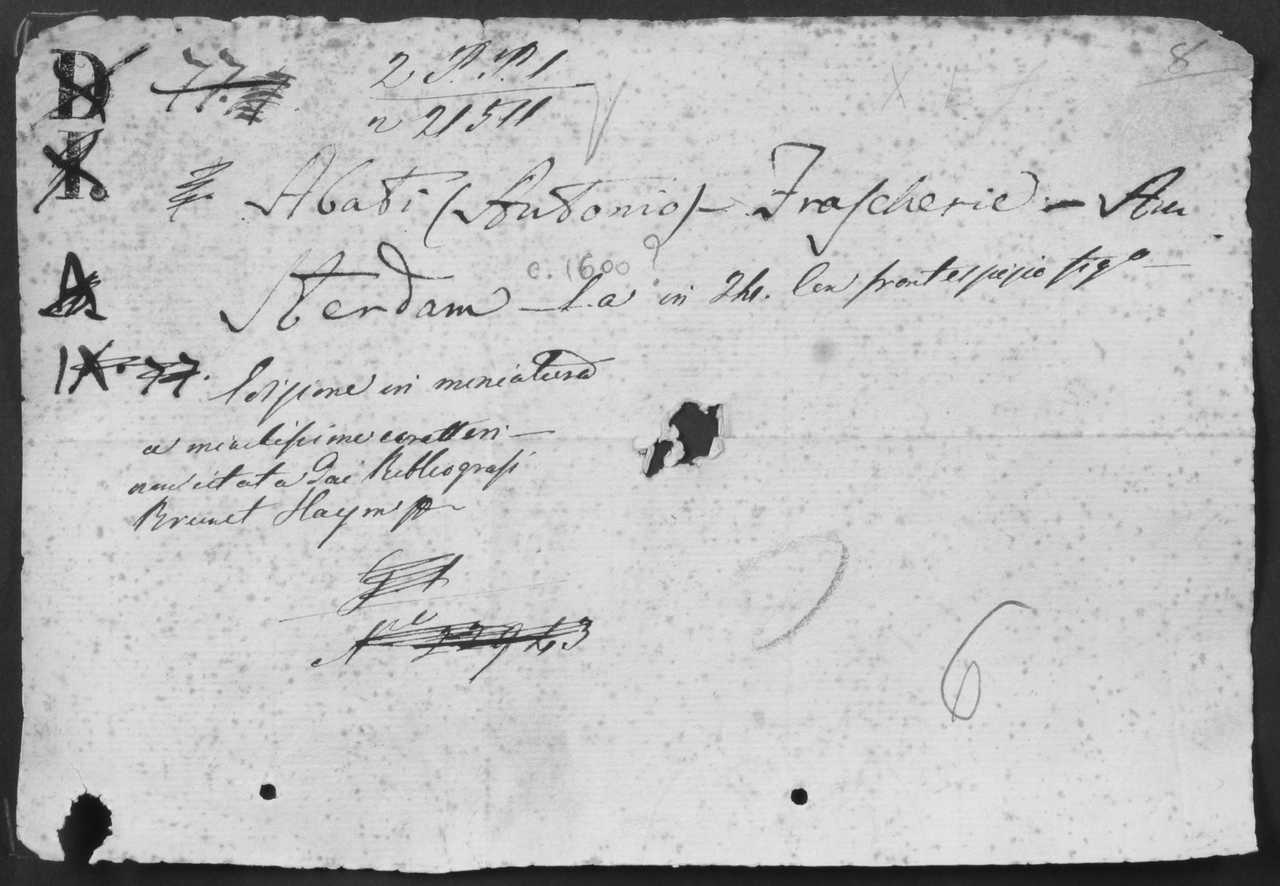 D 77. 2 P.P.1 8
n 21511
I.
Abati (Antonio) – Frascherie – Am
A c. 1600?
sterdam – s.a in 24. Con frontespizio figº –
IX. 77. Edizione in miniatura
a minutissimi caratteri –
non citata dai Bibliografi
Brunet Haym
Nº 22943
6